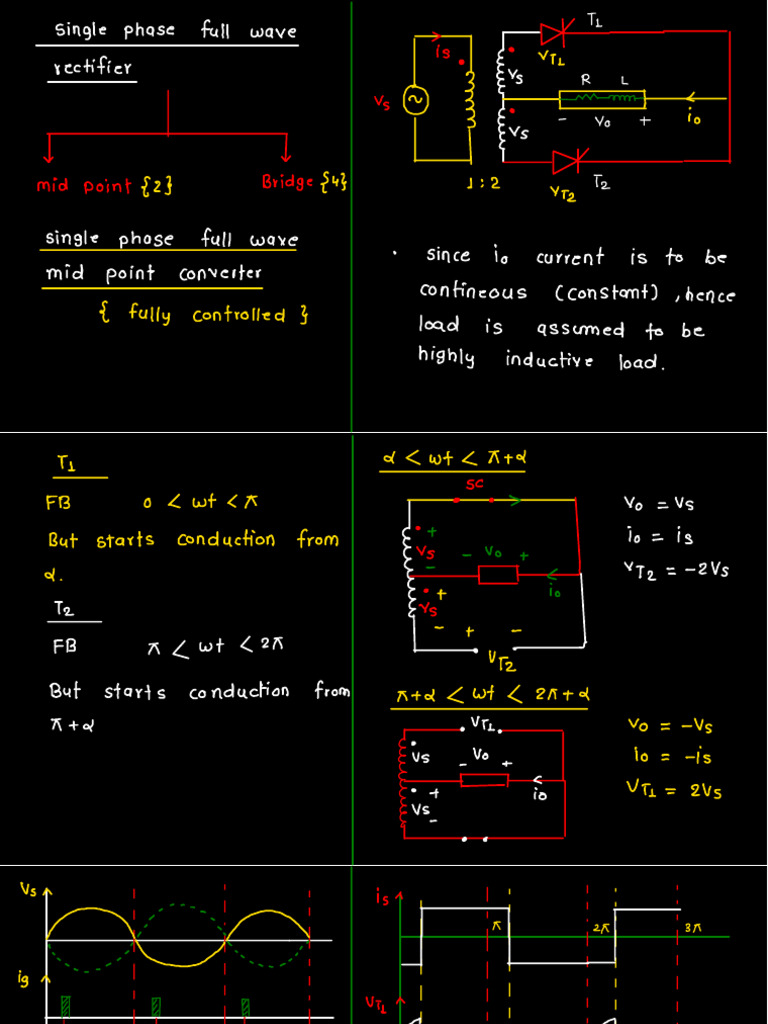 single phase full wave
rectifier
mid point {2}
Bridge {4}
single phase full wave
mid point converter
{ fully controlled }
T1
is
VT1
Vs
R L
Vs
- Vo +
io
Vs
1:2
T2
VT2
• since io current is to be
contineous (constant), hence
load is assumed to be
highly inductive load.
T1
FB 0 < wt < π
But starts conduction from
α.
T2
FB π < wt < 2π
But starts conduction from
π+α
α < wt < π+α
SC
+
Vs
-
- Vo +
io
+
Vs
-
+ -
VT2
Vo = Vs
io = is
VT2 = -2Vs
π+α < wt < 2π+α
VT1
Vs
- Vo +
io
+
Vs
-
Vo = -Vs
io = -is
VT1 = 2Vs
Vs
ig
is
π 2π 3π
VT1